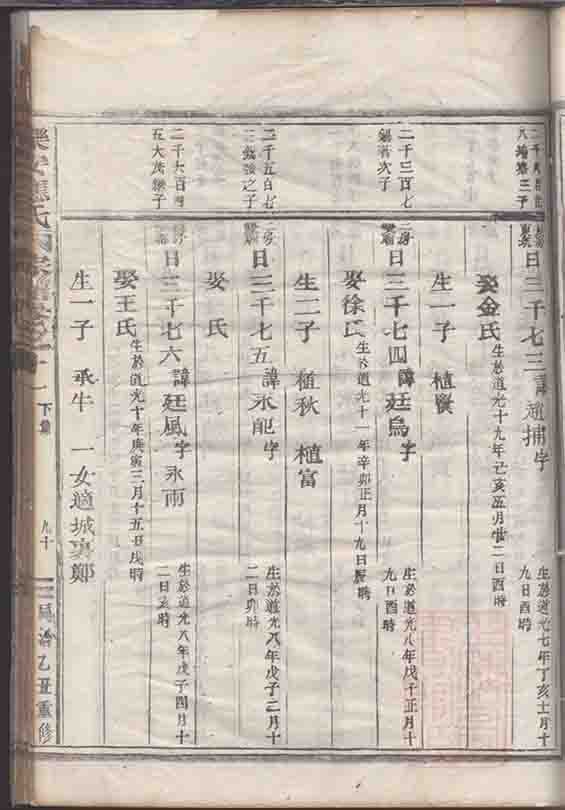 日三千七三 諱趙捕 字
生於道光七年丁亥十月十
九日酉時
娶金氏
生於道光十九年己亥五月廿二日酉時
生一子 植賢
二千三百七
錫蕃次子
日三千七四 諱廷烏 字
生於道光八年戊子正月十
九日酉時
娶徐氏
生於道光十一年辛卯正月十九日辰時
生二子 植秋 植富
二千五百七
日三千七五 諱永能 字
生於道光八年戊子二月十
二日卯時
娶 氏
二千六百四
五大茂樂子
日三千七六 諱廷風 字永雨
生於道光八年戊子四月十
二日亥時
娶王氏
生於道光十年庚寅三月十五日戌時
生一子 承牛 一女適城裏鄭
下 九十
同治乙丑重修